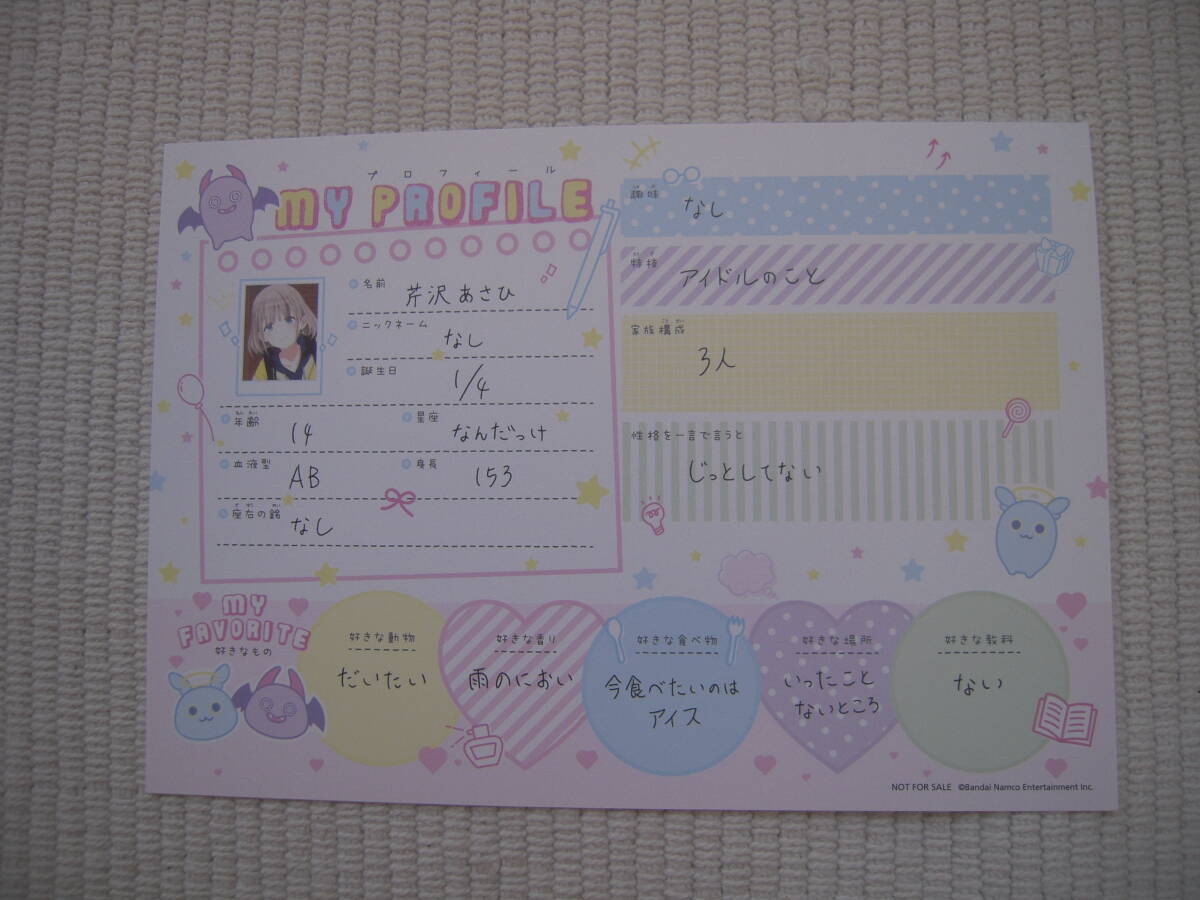 プロフィール
MY PROFILE
名前 芹沢あさひ
ニックネーム なし
誕生日 1/4
年齢 14
星座 なんだっけ
血液型 AB
身長 153
座右の銘 なし
趣味 なし
特技 アイドルのこと
家族構成
3人
性格を一言で言うと
じっとしてない
MY
FAVORITE
好きなもの
好きな動物
だいたい
好きな香り
雨のにおい
好きな食べ物
今食べたいのは
アイス
好きな場所
いったこと
ないところ
好きな教科
ない
NOT FOR SALE ©Bandai Namco Entertainment Inc.